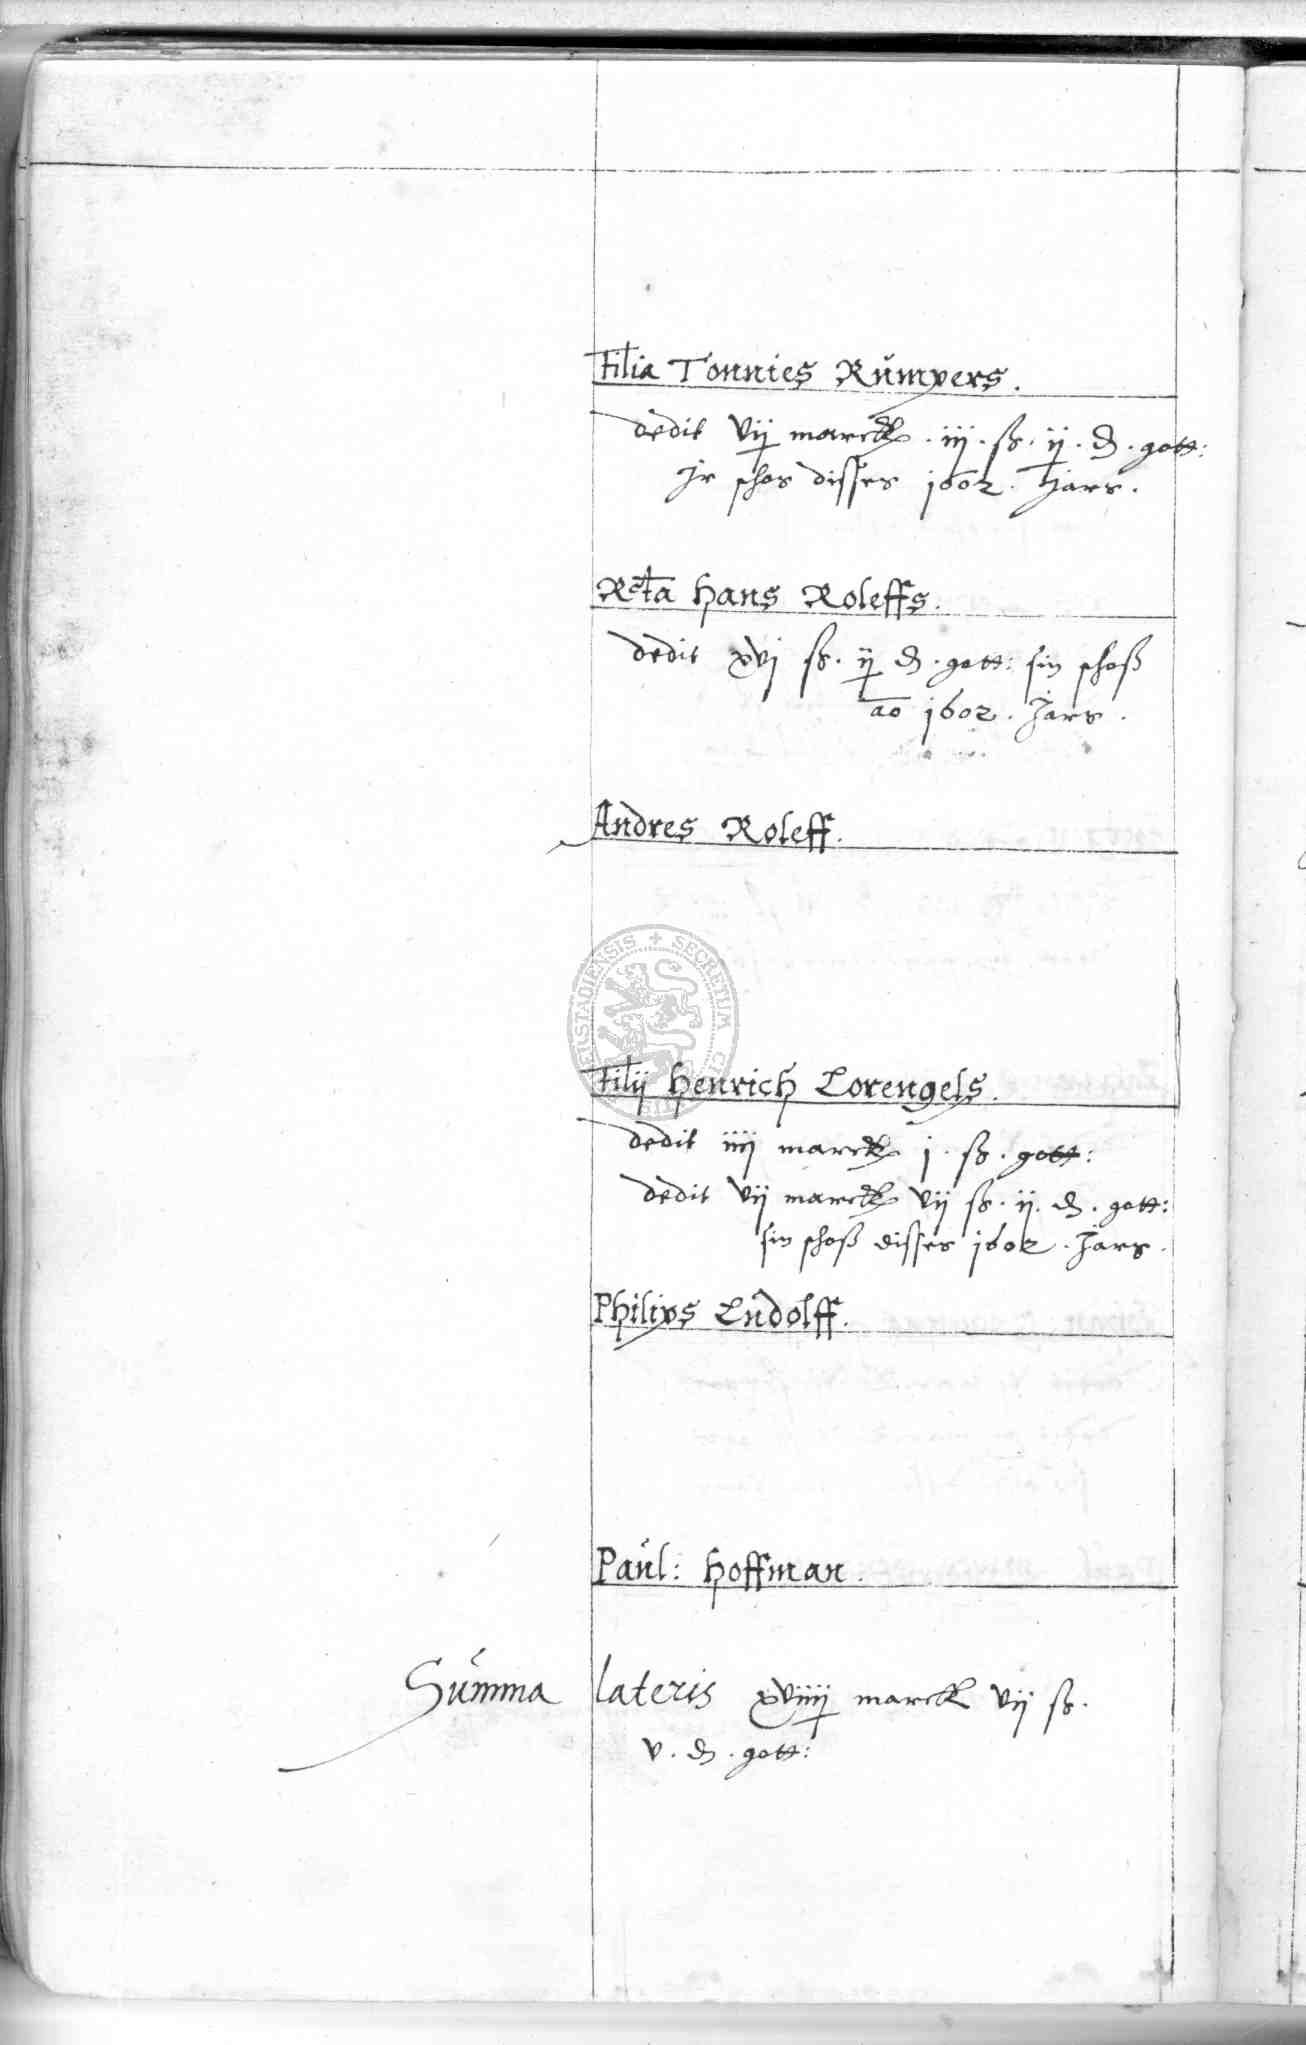 Filia Tonnies Rŭmpers.
dedit vij marck . iij . ß . ij . d . gott:
Jr schos disses 1602 . Jars .
Rcta Hans Roleffs.
dedit xvj ß . ij d . gott: sin schoß
ao 1602 . Jars .
Andres Roleff.
SECRETUM
Filij Henrich Lorengels.
dedit iiij marck j . ß . gott:
dedit vij marck vij ß . ij . d . gott:
sin schoß disses 1602 . Jars .
Philips Lŭdolff.
Paŭl: Hoffman.
Sŭmma lateris xviiij marck vij ß .
v . d . gott: